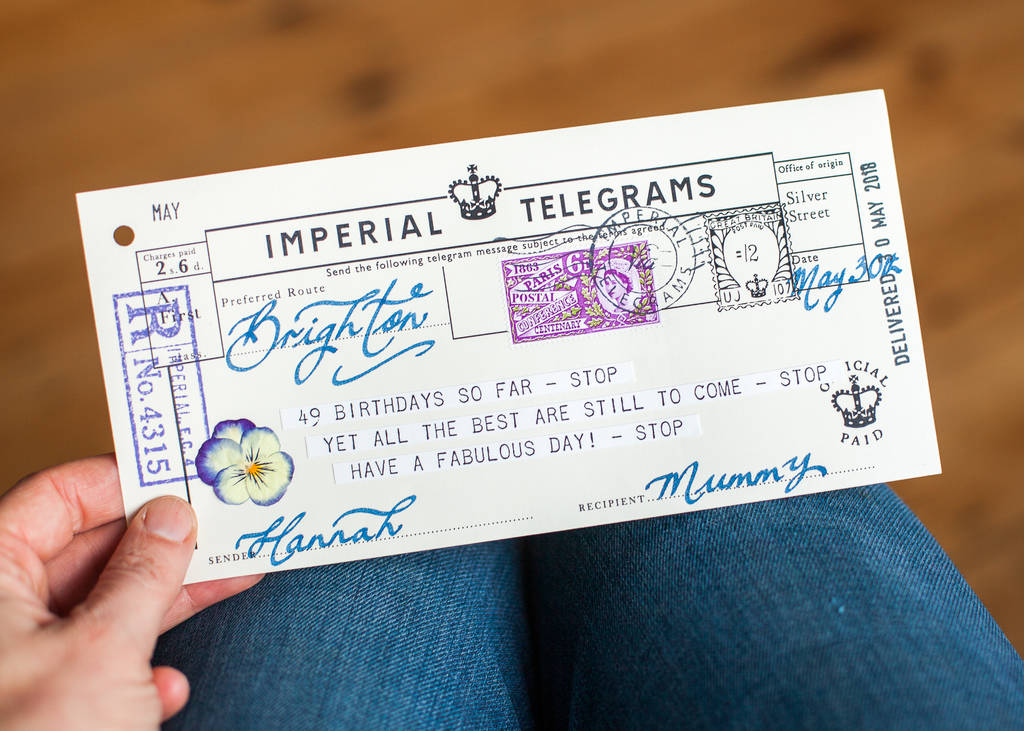 MAY
IMPERIAL TELEGRAMS
Office of origin
Silver Street
Charges paid
2 s. 6 d.
Send the following telegram message subject to the terms agreed
Date
May 30th
DELIVERED 30 MAY 2018
A.
First
Class.
Preferred Route
Brighton
1863
PARIS
6D
POSTAL
CONFERENCE
CENTENARY
IMPERIAL
TELEGRAMS
GREAT BRITAIN
POST PAID
=12
UJ
107
R
No.4315
IMPERIAL
49 BIRTHDAYS SO FAR - STOP
YET ALL THE BEST ARE STILL TO COME - STOP
HAVE A FABULOUS DAY! - STOP
OFFICIAL
PAID
SENDER Hannah
RECIPIENT Mummy